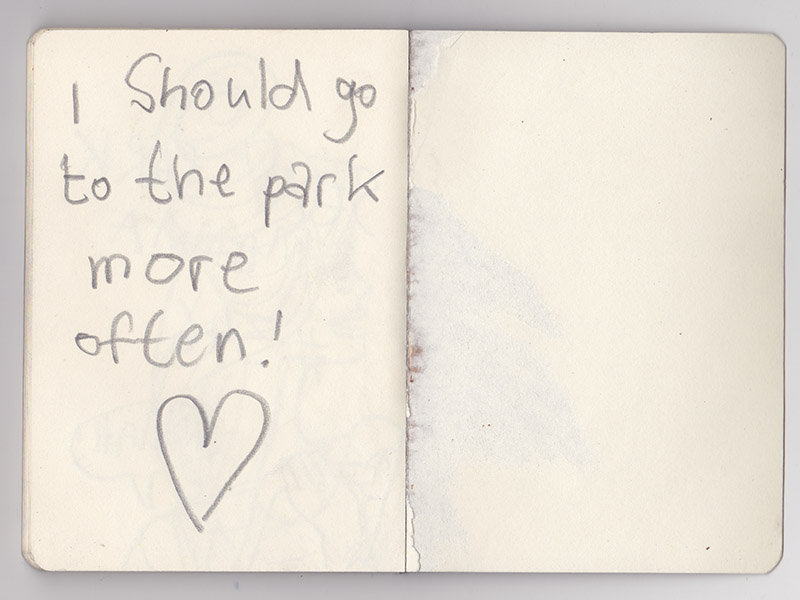 I Should go
to the park
more
often!